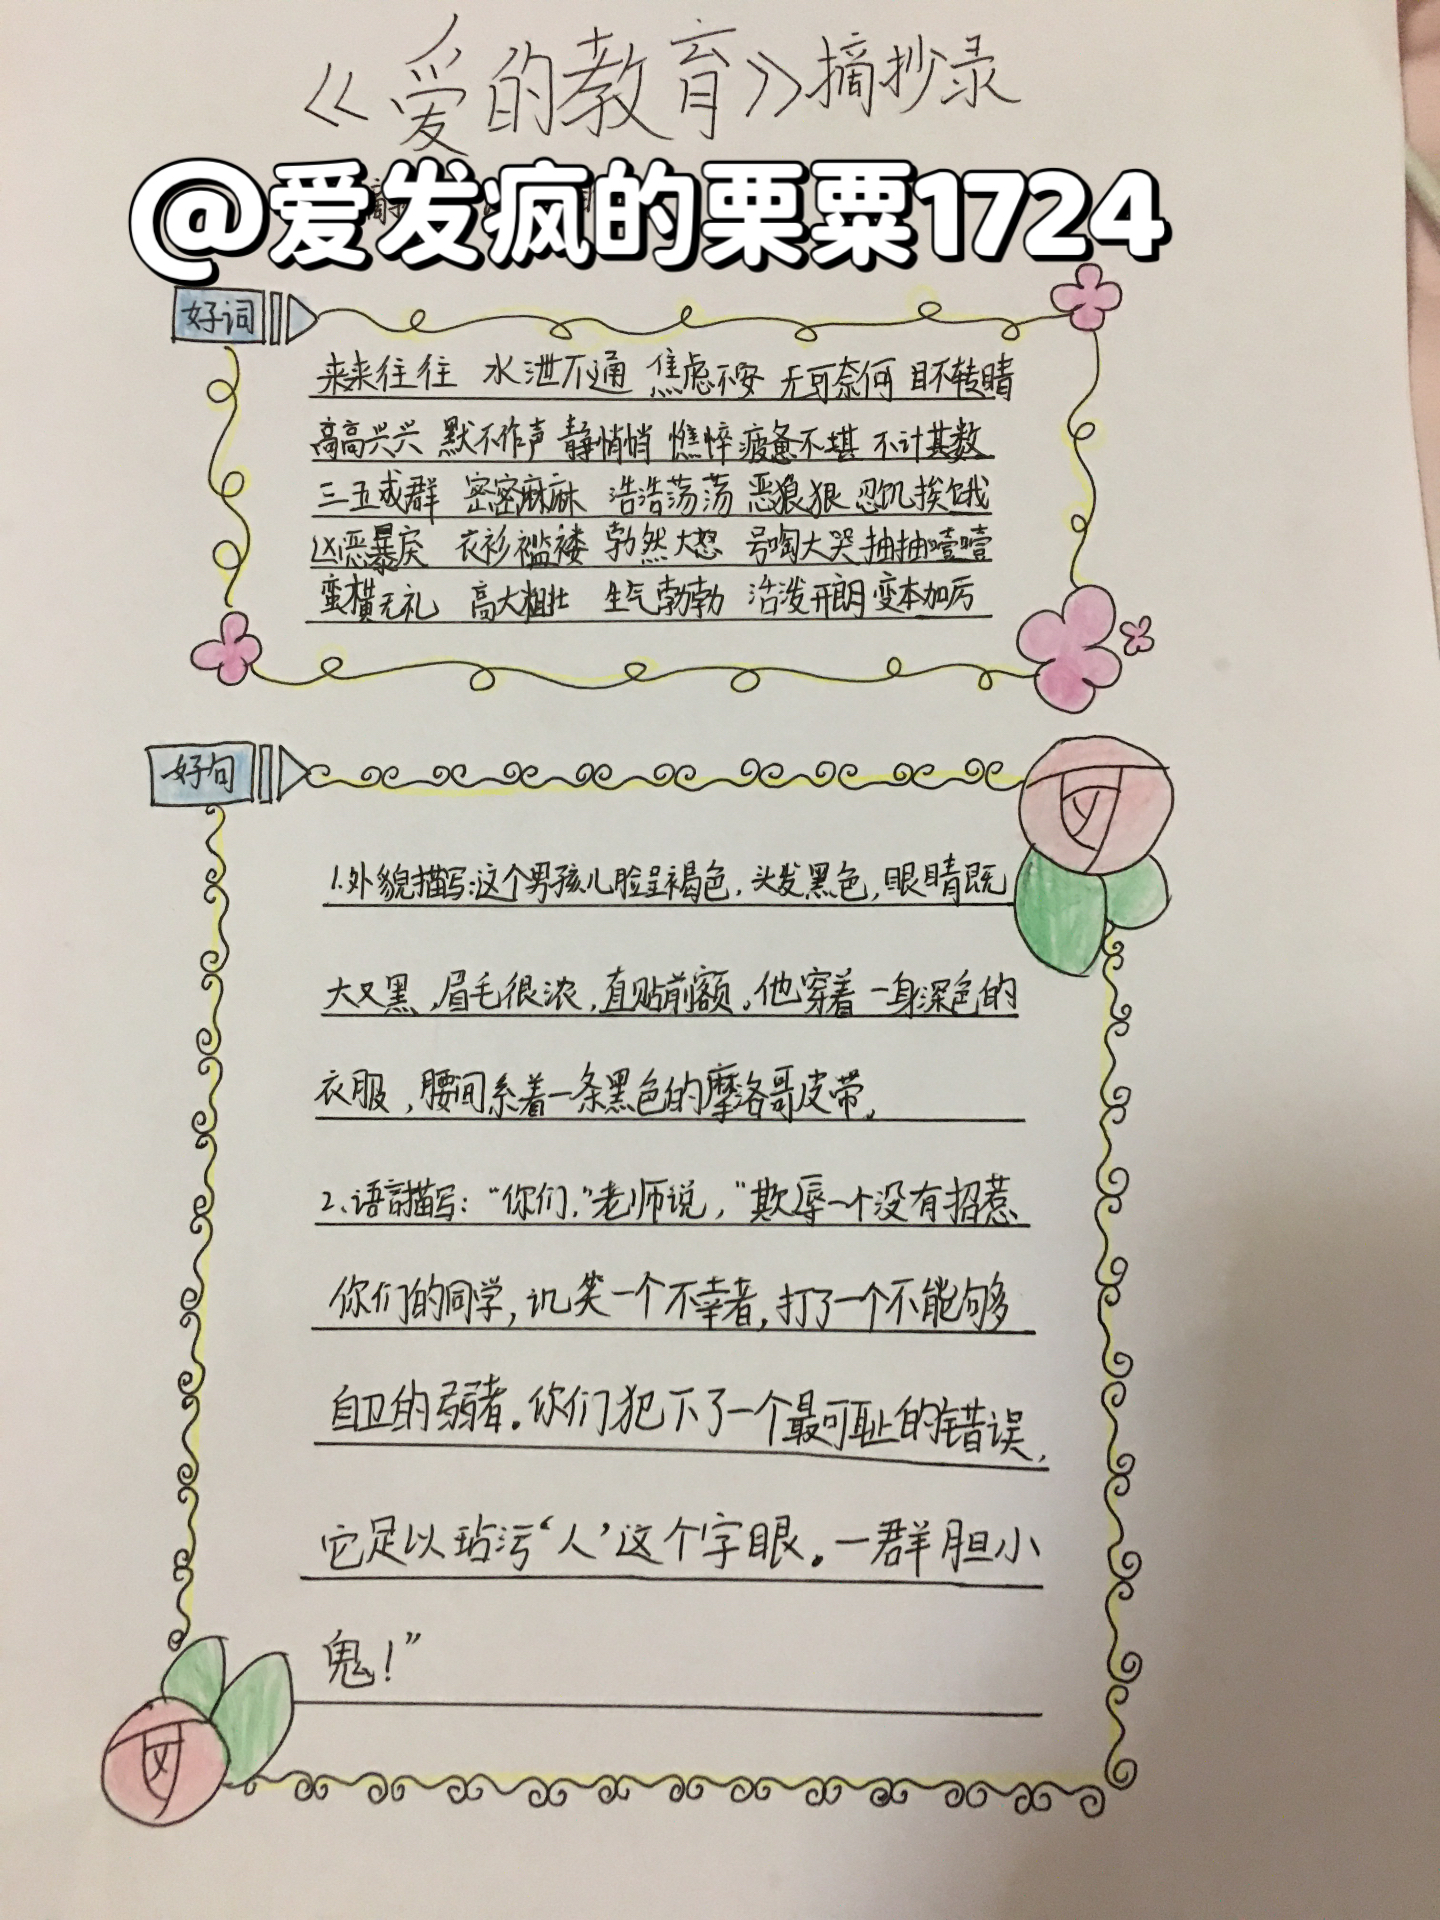 《爱的教育》摘抄录
@爱发疯的栗粟1724
好词
来来往往 水泄不通 焦虑不安 无可奈何 目不转睛
高高兴兴 默不作声 静悄悄 憔悴 疲惫不堪 不计其数
三五成群 密密麻麻 浩浩荡荡 恶狼狠 忍饥挨饿
凶恶暴戾 衣衫褴褛 勃然大怒 号啕大哭 抽抽噎噎
蛮横无礼 高大粗壮 生气勃勃 活泼开朗 变本加厉
好句
1.外貌描写:这个男孩儿脸呈褐色，头发黑色，眼睛既
大又黑，眉毛很浓，直贴前额。他穿着一身深色的
衣服，腰间系着一条黑色的摩洛哥皮带。
2、语言描写：“你们，”老师说，“欺辱一个没有招惹
你们的同学，讥笑一个不幸者，打了一个不能够
自卫的弱者。你们犯下了一个最可耻的错误，
它足以玷污‘人’这个字眼。一群胆小
鬼！”